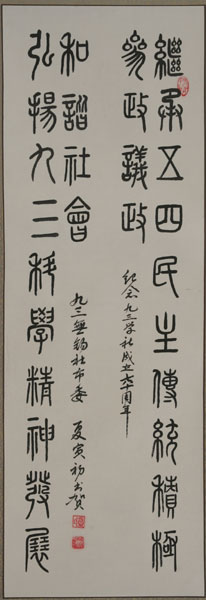 繼承五四民主傳統積極
參政議政
纪念九三学社成立六十周年
弘揚九三科學精神發展
和諧社會
九三無錫社市委 夏寅初书贺